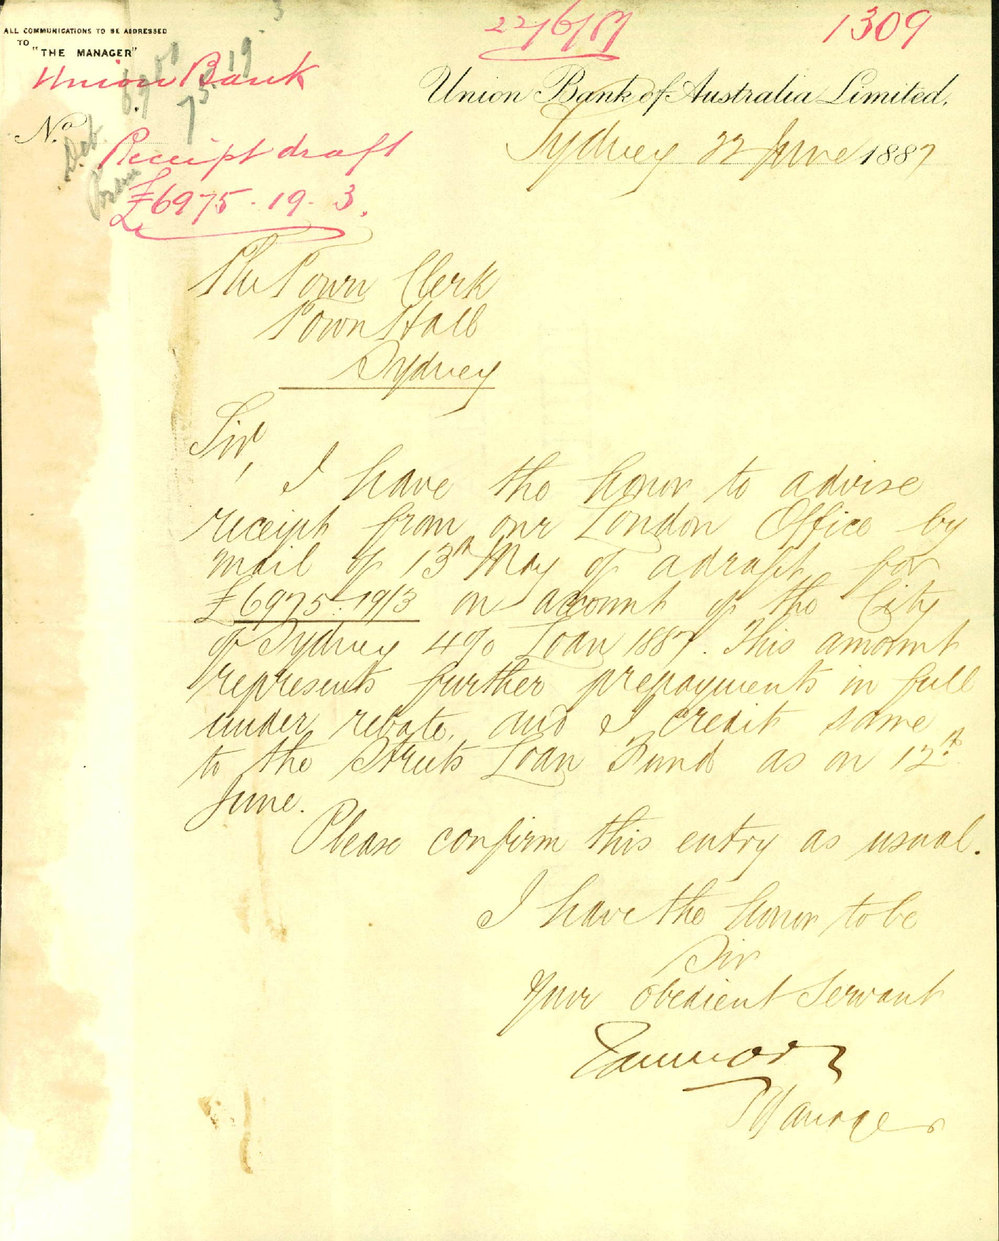 ALL COMMUNICATIONS TO BE ADDRESSED
TO
"THE MANAGER"
22/6/87
1309
Union Bank
Union Bank of Australia Limited.
No.
Sydney 22 June 1887
Receipt draft
£6975. 19. 3.
The Town Clerk
Town Hall
Sydney
Sir,
I have the honor to advise
receipt from our London Office by
mail of 13th May of a draft for
£6975.19/3 on account of the City
of Sydney 4% Loan 1887. This amount
represents further prepayments in full
under rebate, and I credit same
to the Streets Loan Fund as on 12th
June.
Please confirm this entry as usual.
I have the honor to be
Sir
Your obedient Servant
Manager